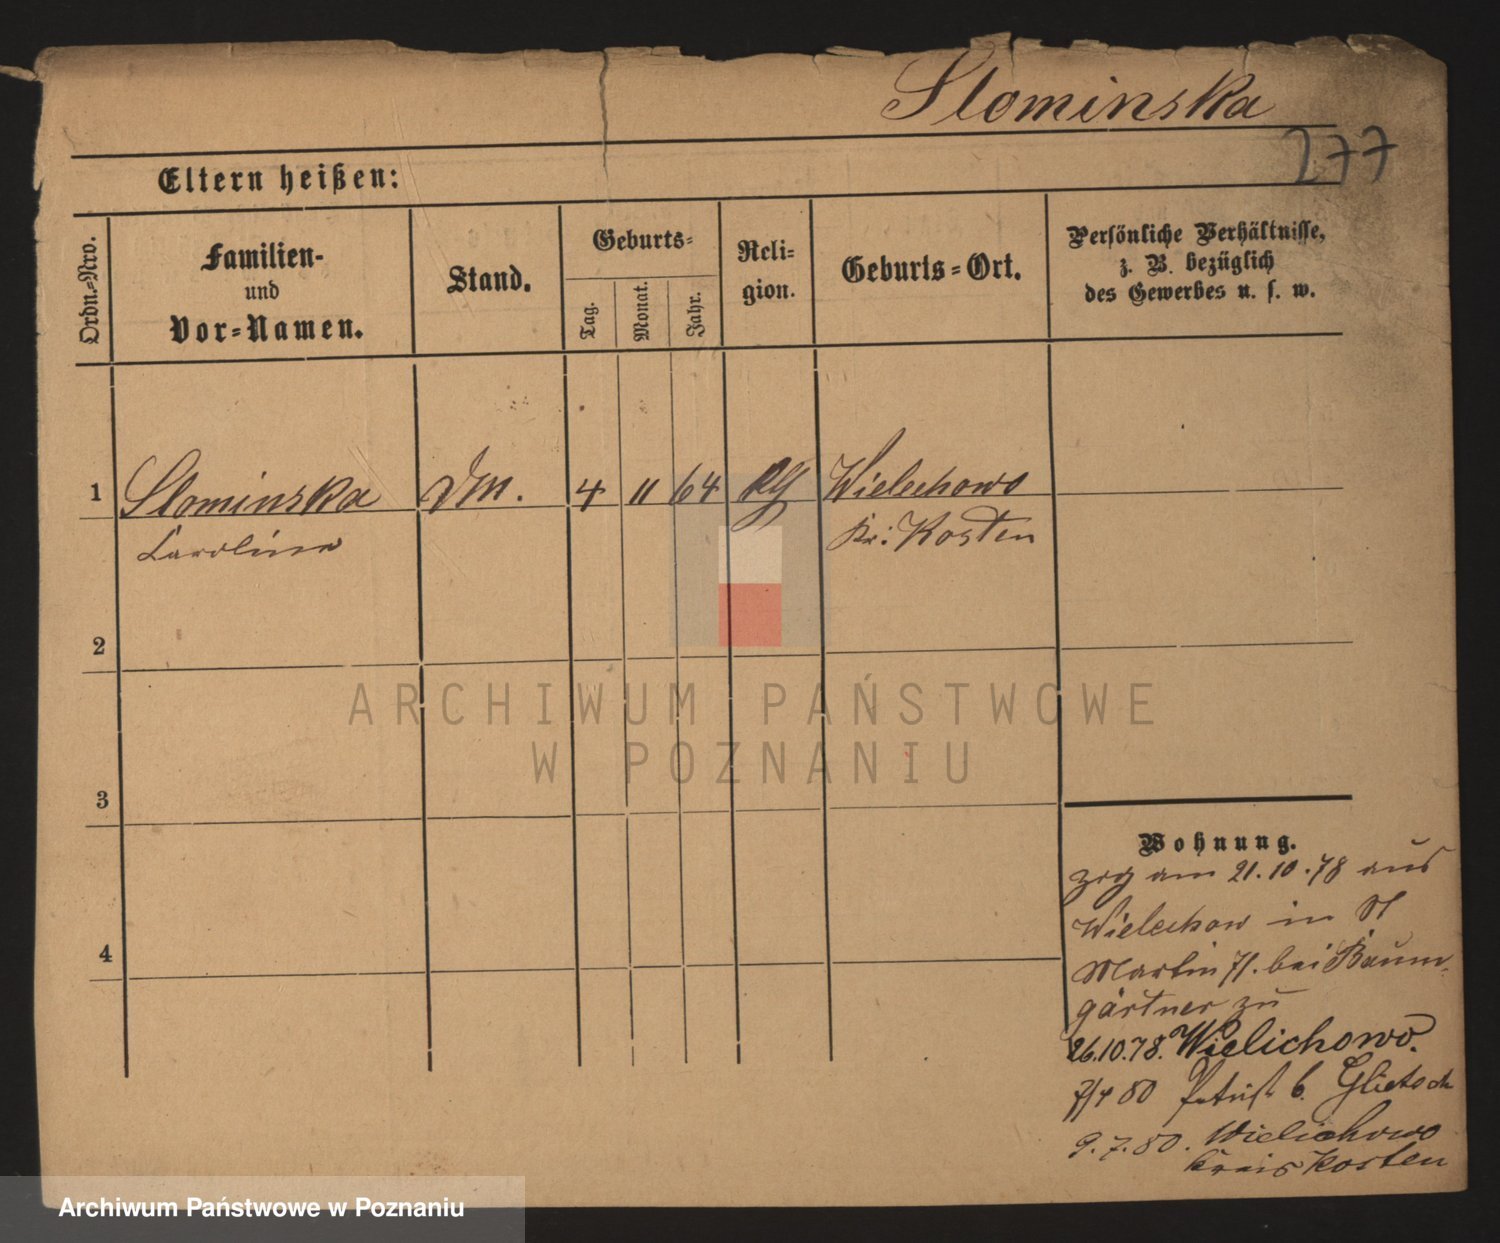 Slominska
277
Eltern heißen:
Ordn.-Nro.
Familien-
und
Vor-Namen.
Stand.
Geburts-
Tag.
Monat.
Jahr.
Reli-
gion.
Geburts-Ort.
Persönliche Verhältnisse,
z. B. bezüglich
des Gewerbes u. s. w.
1 Slominska DM. 4 11 64 Wielechowo
Caroline Kr: Kosten
2
3
4
Wohnung.
zog am 21.10.78 aus
Wielechow in St
Martin 71. bei Baum-
gärtner zu
26.10.78. Wielichowo.
7/4 80 b.
9.7.80. Wielichowo
Kreis Kosten
ARCHIWUM PAŃSTWOWE
W POZNANIU
Archiwum Państwowe w Poznaniu